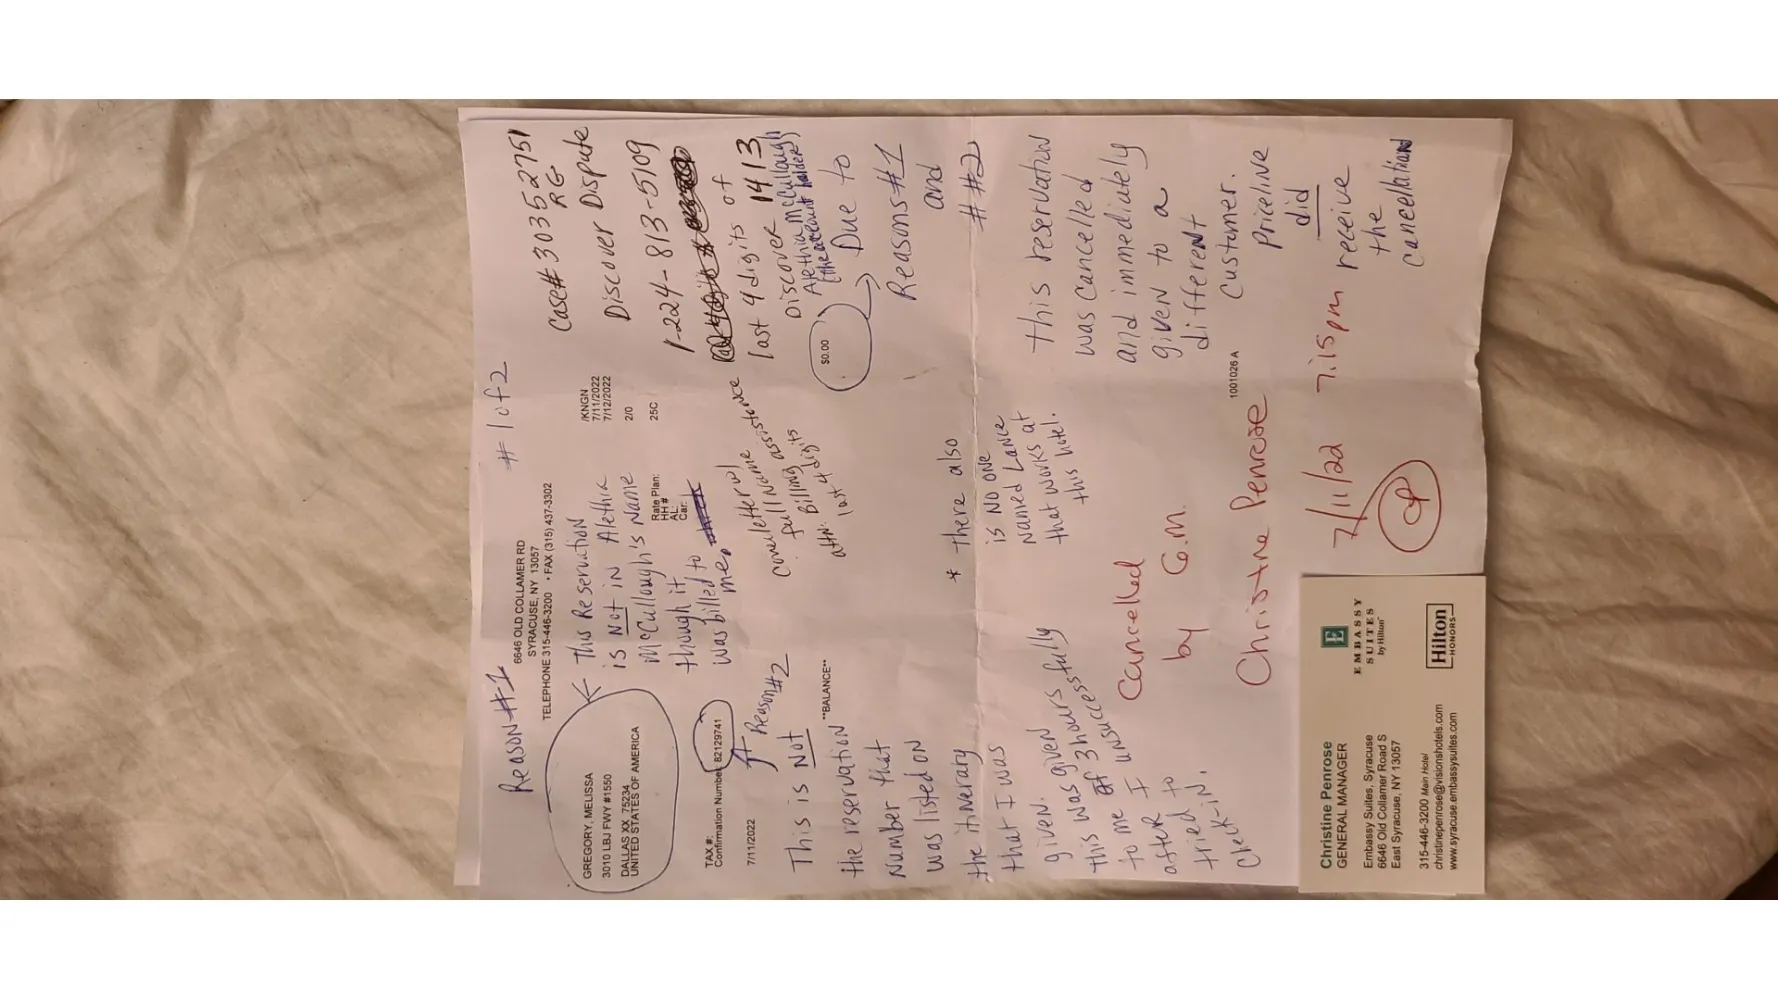 # 1 of 2
Case# 3035 2751
RG
Discover Dispute
1-224-813-5109
last 4 digits of
Discover 1413
Alethia McCullough
(the account holder)
Reason #1
6646 OLD COLLAMER RD
SYRACUSE, NY 13057
TELEPHONE 315-446-3200 • FAX (315) 437-3302
GREGORY, MELISSA
3010 LBJ FWY #1550
DALLAS XX 75234
UNITED STATES OF AMERICA
This Reservation
is Not in Alethia
McCullough's Name
though it
was billed to
me.
/KNGN
7/11/2022
7/12/2022
2/0
25C
Rate Plan:
HH #
AL:
Car:
TAX #:
Confirmation Number: 82129741
7/11/2022
Reason #2
cover letter w/
full name
attn: Billing assistence
last 4 digits
**BALANCE**
$0.00
Due to
Reasons #1
and
# #2
This is Not
the reservation
number that
was listed on
the itinerary
that I was
given.
this was given
to me 3 hours
after I unsuccessfully
tried to
check-in.
* there also
is no one
named Lance
that works at
this hotel.
this reservation
was cancelled
and immediately
given to a
different
customer.
Priceline
did
receive
the
cancellation
1001026 A
Cancelled
by G.M.
Christine Penrose
7/11/22 7:15pm
CP
Christine Penrose
GENERAL MANAGER
Embassy Suites, Syracuse
6646 Old Collamer Road S
East Syracuse, NY 13057
315-446-3200 Main Hotel
christinepenrose@visionshotels.com
www.syracuse.embassysuites.com
E
EMBASSY
SUITES
by Hilton
Hilton
HONORS